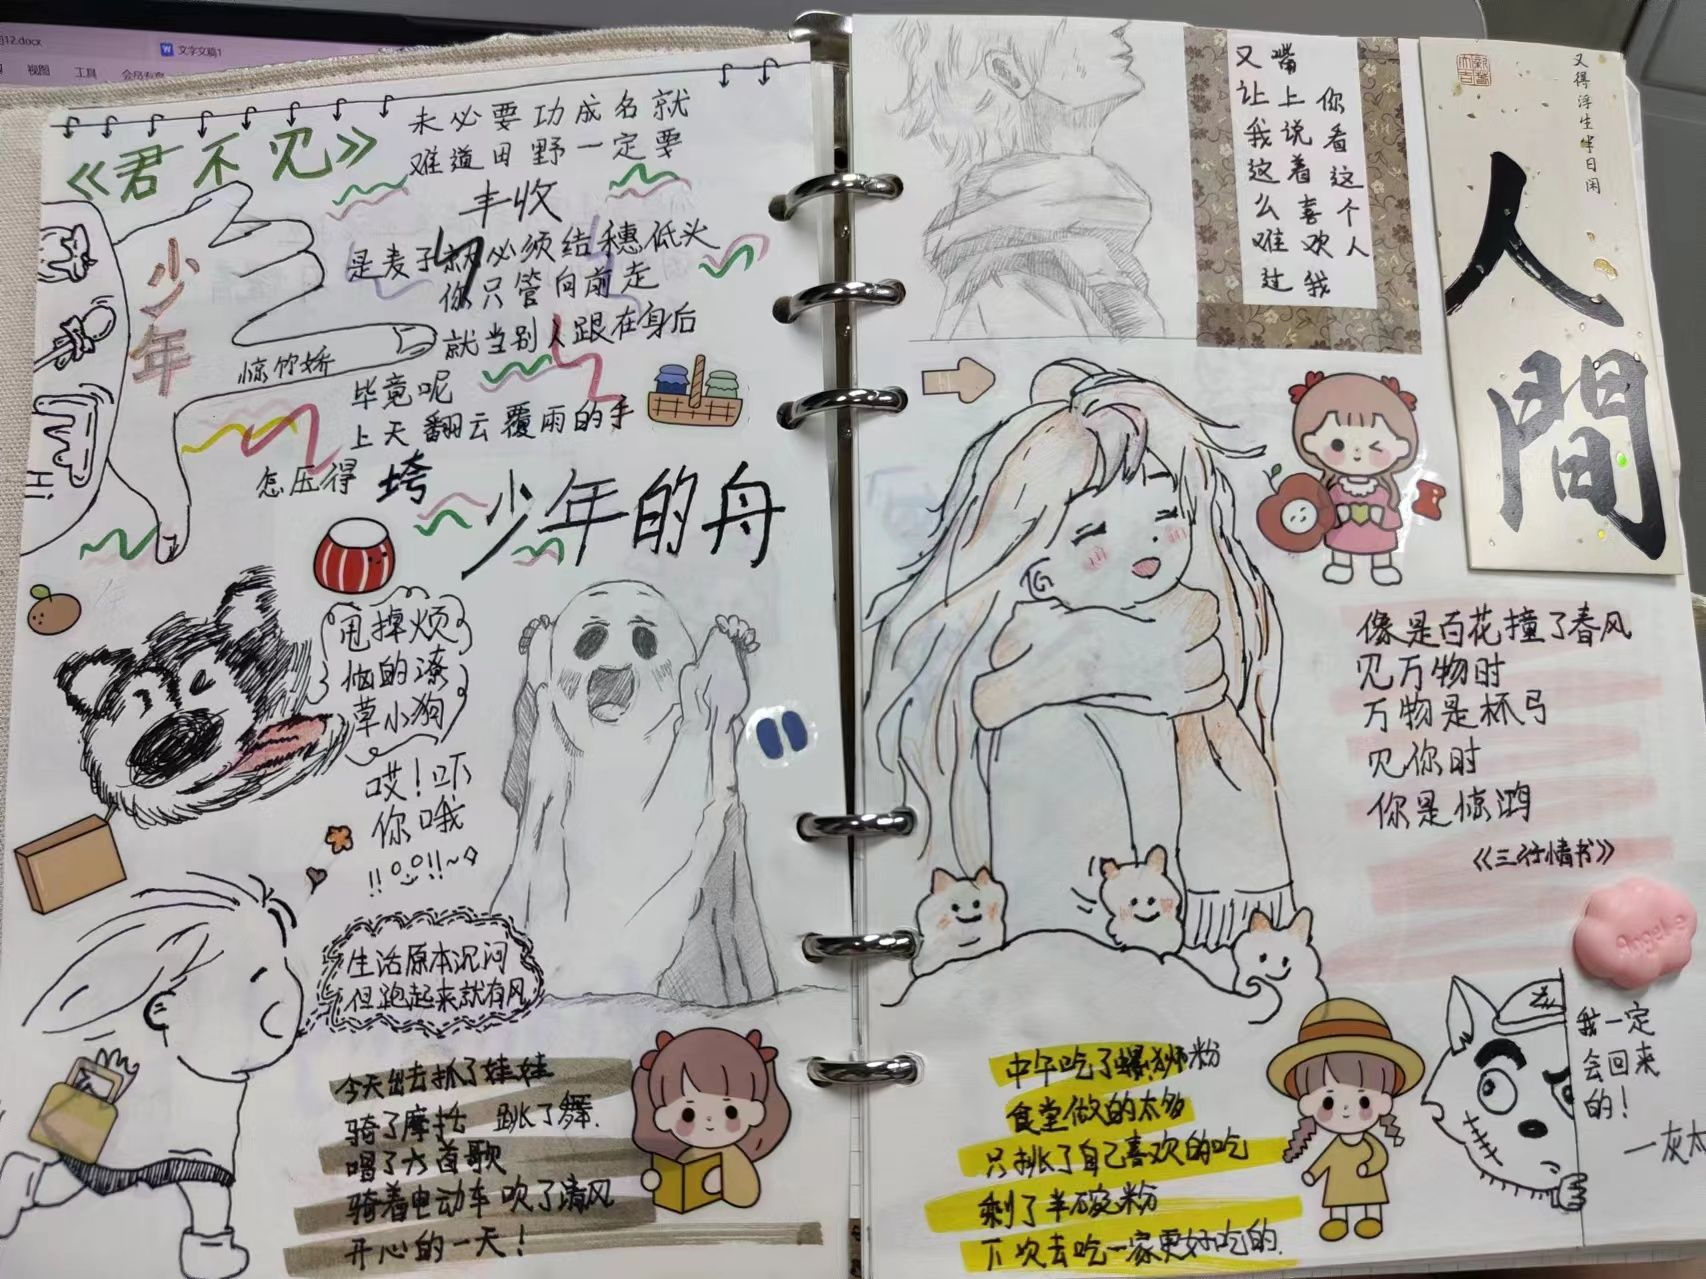 12.docx
文字文稿1
视图
工具
《君不见》
未必要功成名就
难道田野一定要
丰收
是麦子就必须结穗低头
你只管向前走
就当别人跟在身后
毕竟呢
上天翻云覆雨的手
怎压得垮
少年的舟
少年
惊竹娇
Hi
甩掉烦
恼的潦
草小狗
哎！吓
你哦
!!
!!~
生活原本沉闷
但跑起来就有风
今天出去抓了娃娃
骑了摩托 跳了舞.
唱了六首歌
骑着电动车吹了清风
开心的一天！
你看这个人
嘴上说着喜欢我
又让我这么难过
又得浮生半日闲
人間
像是百花撞了春风
见万物时
万物是杯弓
见你时
你是惊鸿
《三行情书》
Angel
中午吃了螺狮粉
食堂做的太多
只挑了自己喜欢的吃
剩了半碗粉
下次去吃一家更好吃的.
我一定
会回来
的！
—灰太